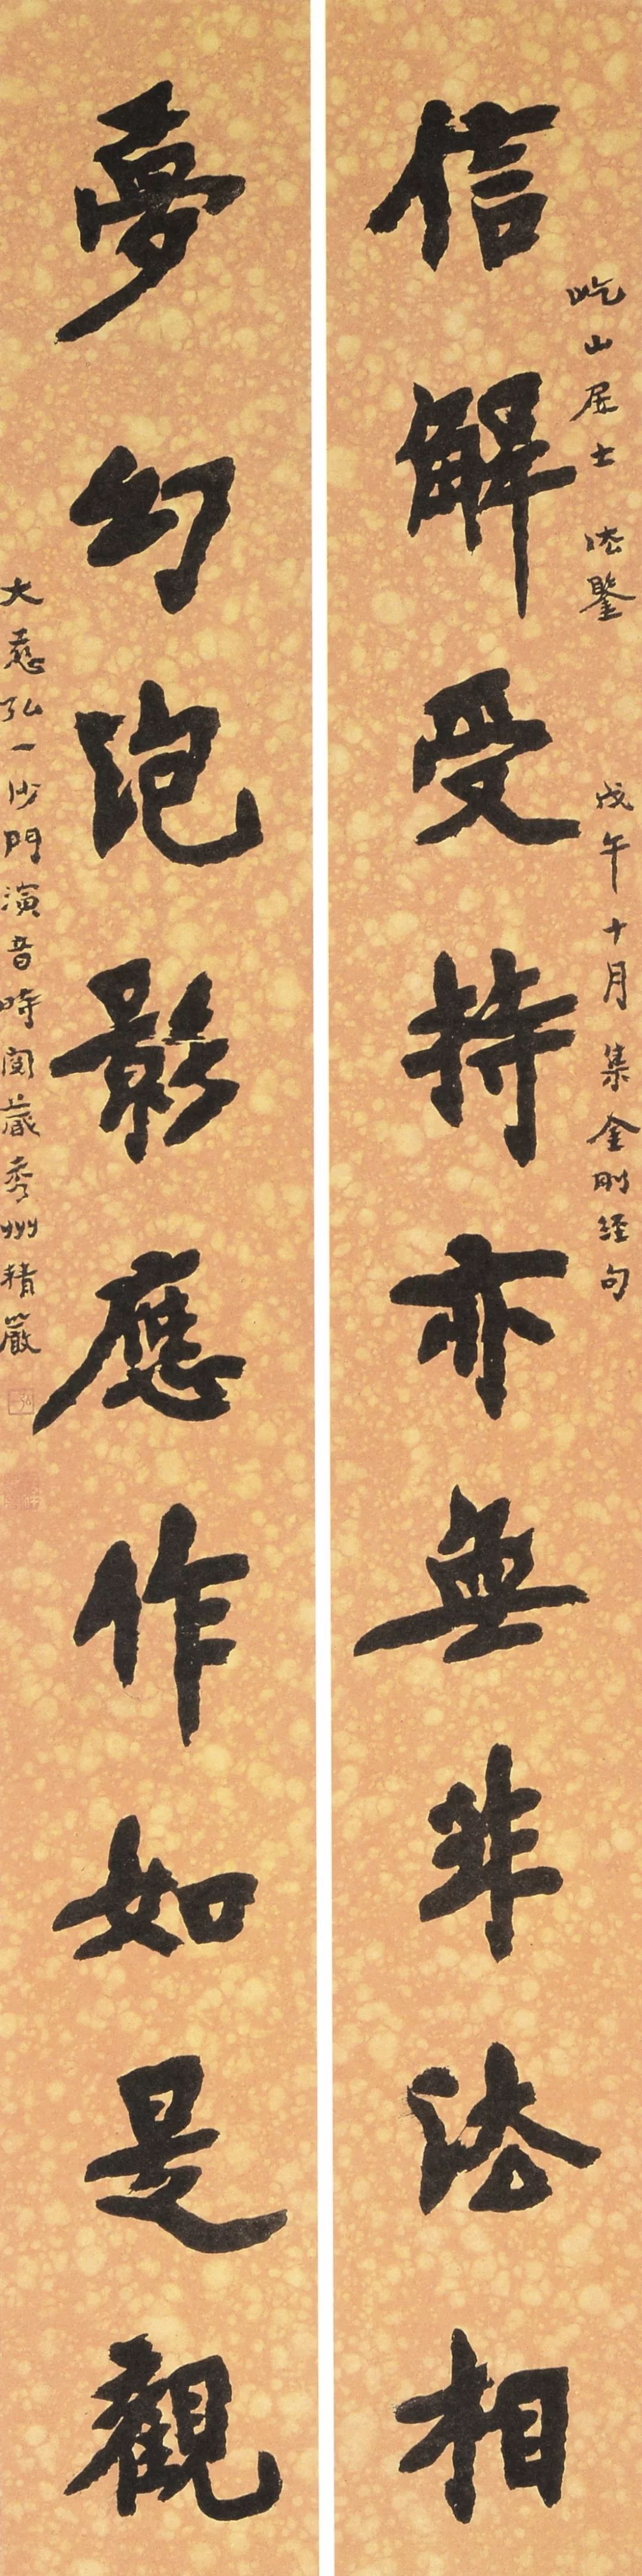 屹山居士 法鑒
戊午十月集金剛經句
信解受持亦無非法相
夢幻泡影應作如是觀
大慈弘一沙門演音時閱藏秀州精嚴
弘一